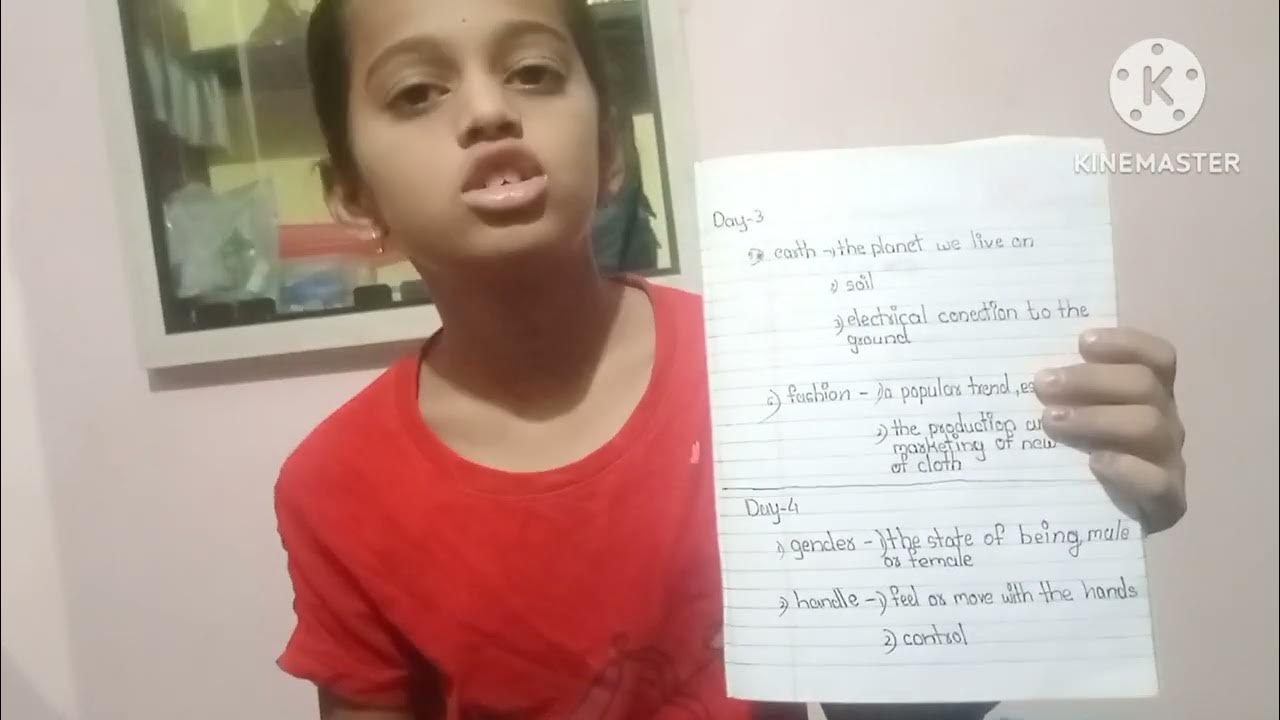 K
KINEMASTER
Day-3
earth → the planet we live on
2) soil
3) electrical conection to the
ground
2) fashion - 1) a popular trend,
2) the production
marketing of new
of cloth
Day-4
1) gender - 1) the state of being male
or female
2) handle - 1) feel or move with the hands
2) control